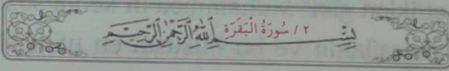 بِسْمِ ٢ / سُورَةُ الْبَقَرَةِ اللهِ الرَّحْمٰنِ الرَّحِيمِ